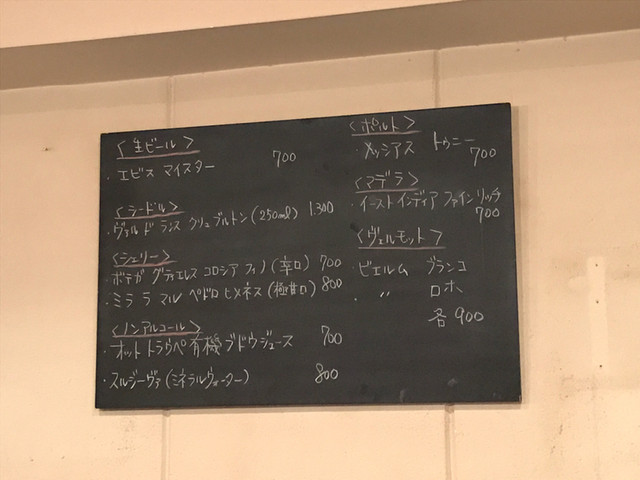 〈生ビール〉
・エビス マイスター 700
〈シードル〉
・ヴァル ド ランス クリュ ブルトン(250ml) 1300
〈シェリー〉
・ボデガ グティエレス コロシア フィノ(辛口) 700
・ミラ ラ マル ペドロ ヒメネス(極甘口) 800
〈ノンアルコール〉
・オット トラウベ 有機ブドウジュース 700
・スルジーヴァ(ミネラルウォーター) 800
〈ポルト〉
・メッシアス トゥニー 700
〈マデラ〉
・イースト インディア ファイン リッチ 700
〈ヴェルモット〉
・ビエルム ブランコ
・〃 ロホ
各900